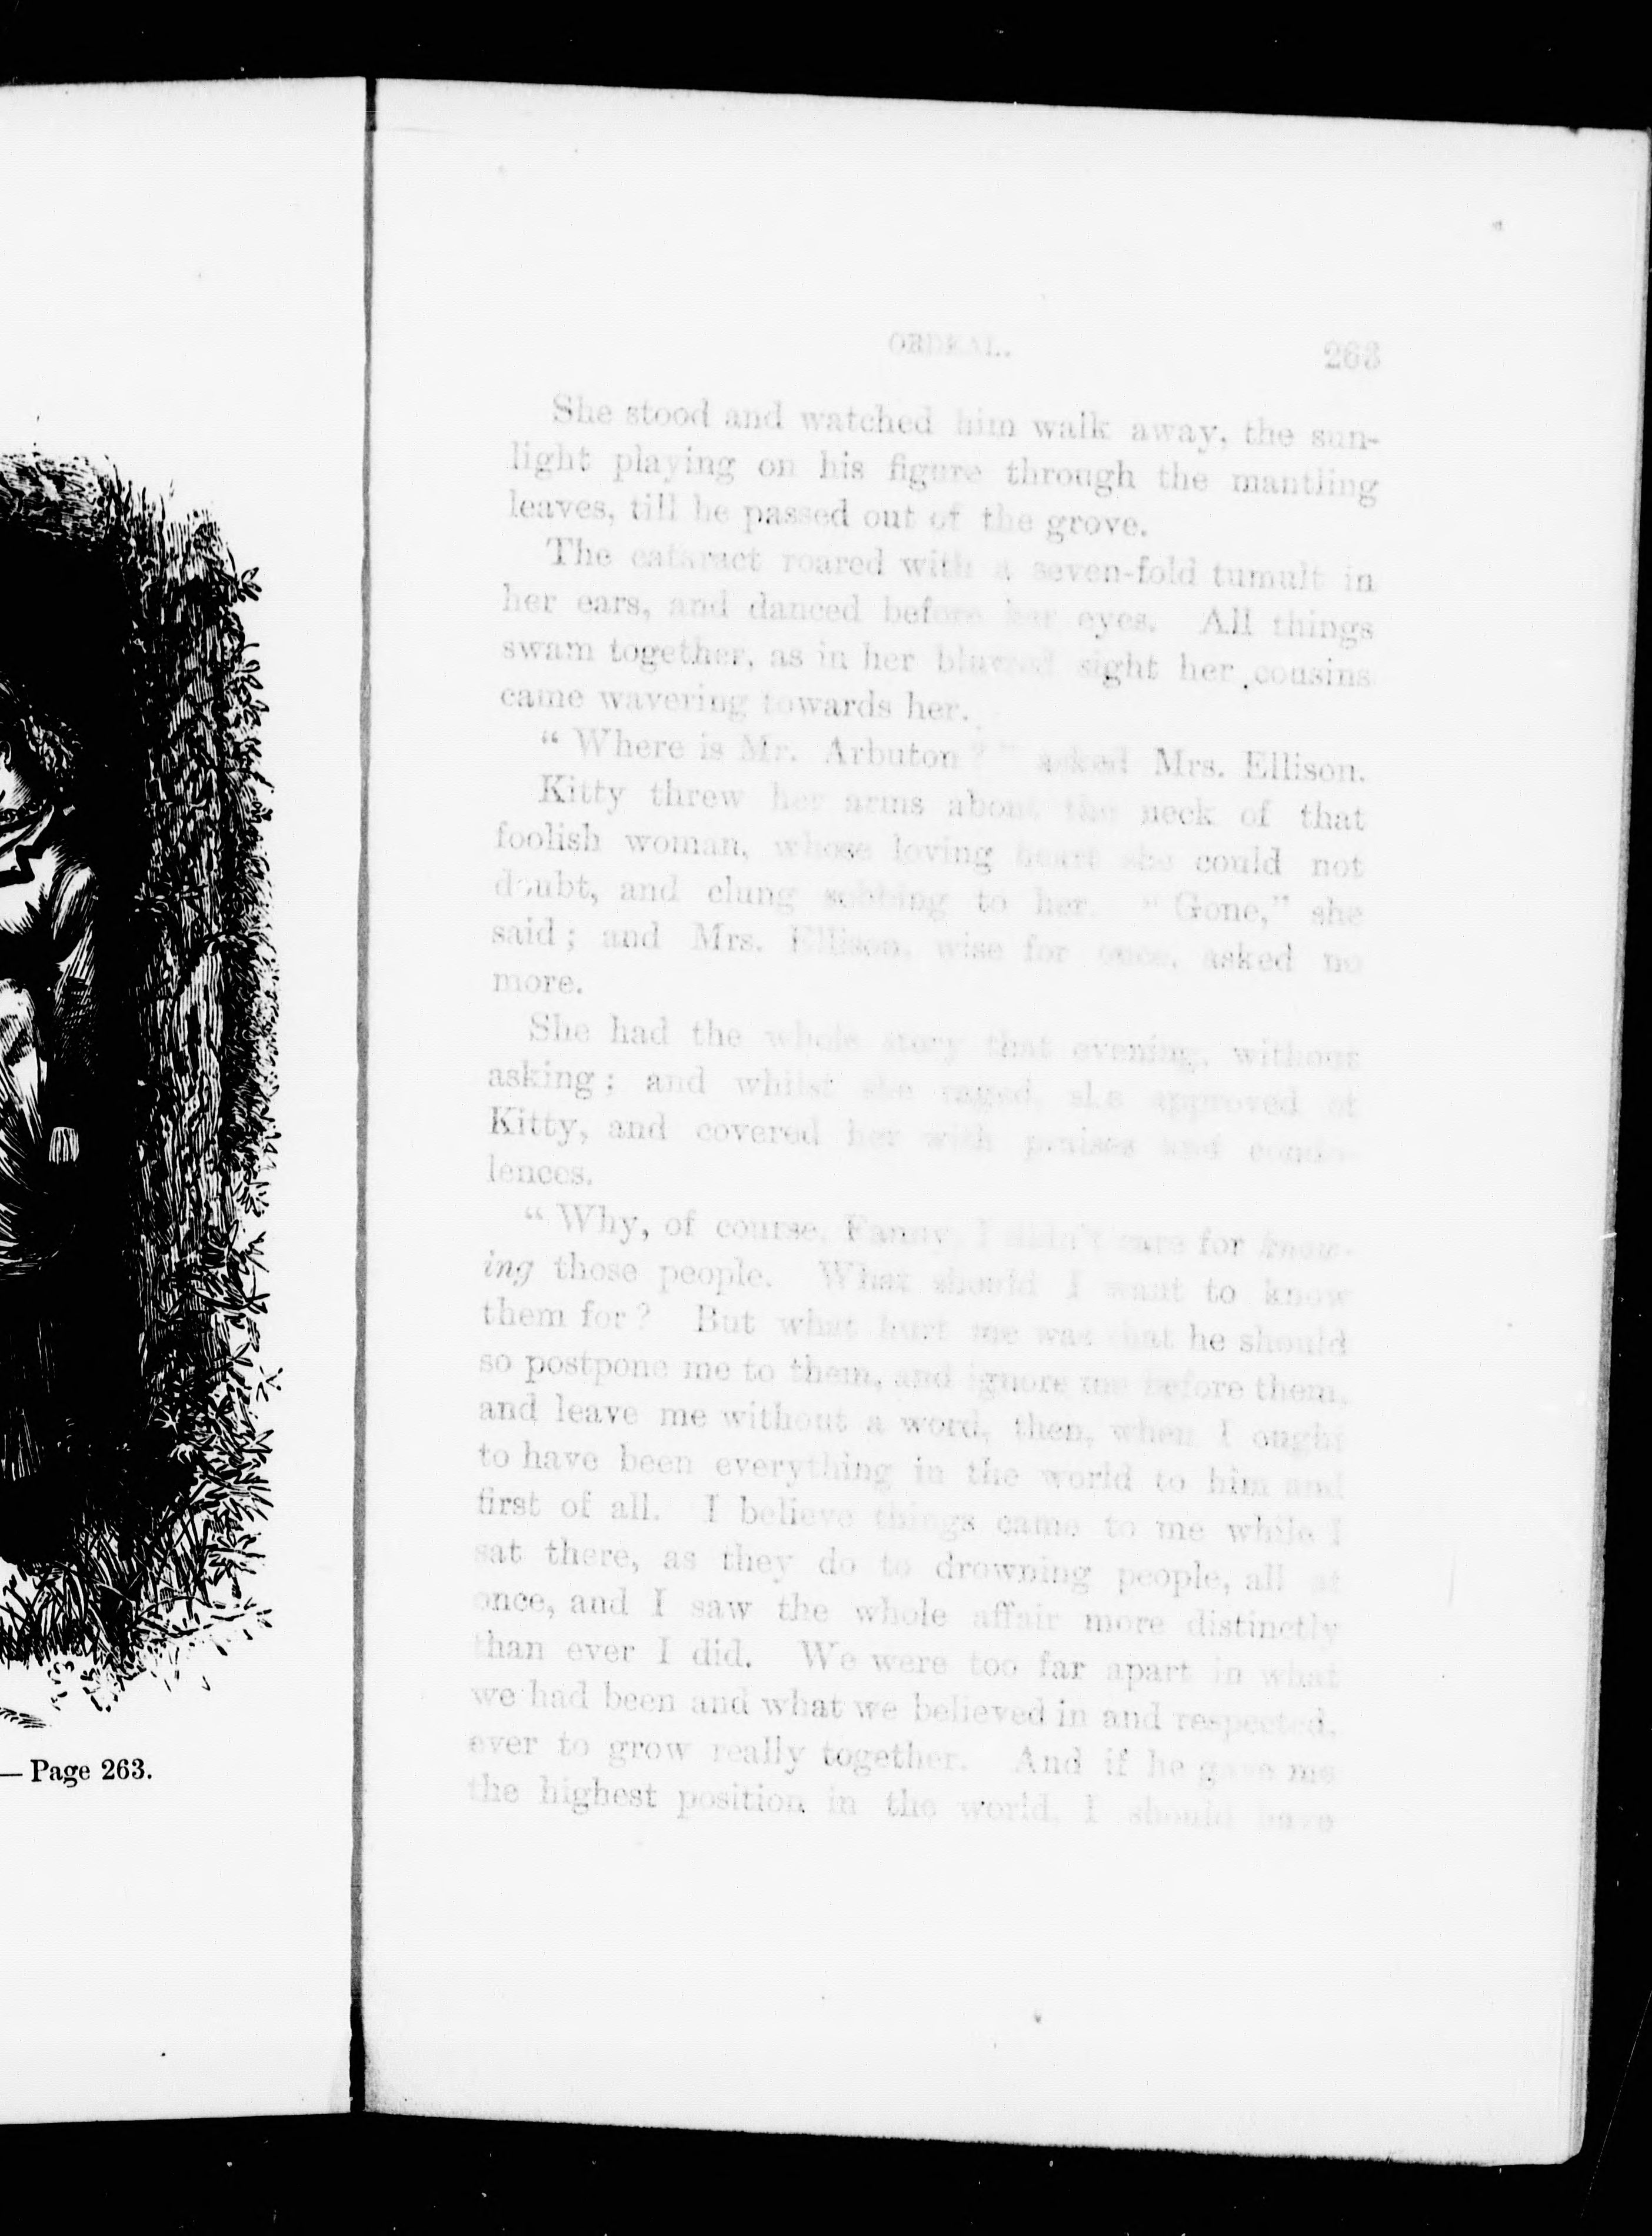 — Page 263.
ORDEAL.
263
She stood and watched him walk away, the sun-
light playing on his figure through the mantling
leaves, till he passed out of the grove.
The cataract roared with a seven-fold tumult in
her ears, and danced before her eyes. All things
swam together, as in her blurred sight her cousins
came wavering towards her.
“ Where is Mr. Arbuton ? ” asked Mrs. Ellison.
Kitty threw her arms about the neck of that
foolish woman, whose loving heart she could not
doubt, and clung sobbing to her. “ Gone,” she
said ; and Mrs. Ellison, wise for once, asked no
more.
She had the whole story that evening, without
asking ; and whilst she raged, she approved of
Kitty, and covered her with praises and condo-
lences.
“ Why, of course, Fanny, I didn't care for know-
ing those people. What should I want to know
them for ? But what hurt me was that he should
so postpone me to them, and ignore me before them,
and leave me without a word, then, when I ought
to have been everything in the world to him and
first of all. I believe things came to me while I
sat there, as they do to drowning people, all at
once, and I saw the whole affair more distinctly
than ever I did. We were too far apart in what
we had been and what we believed in and respected,
ever to grow really together. And if he gave me
the highest position in the world, I should have